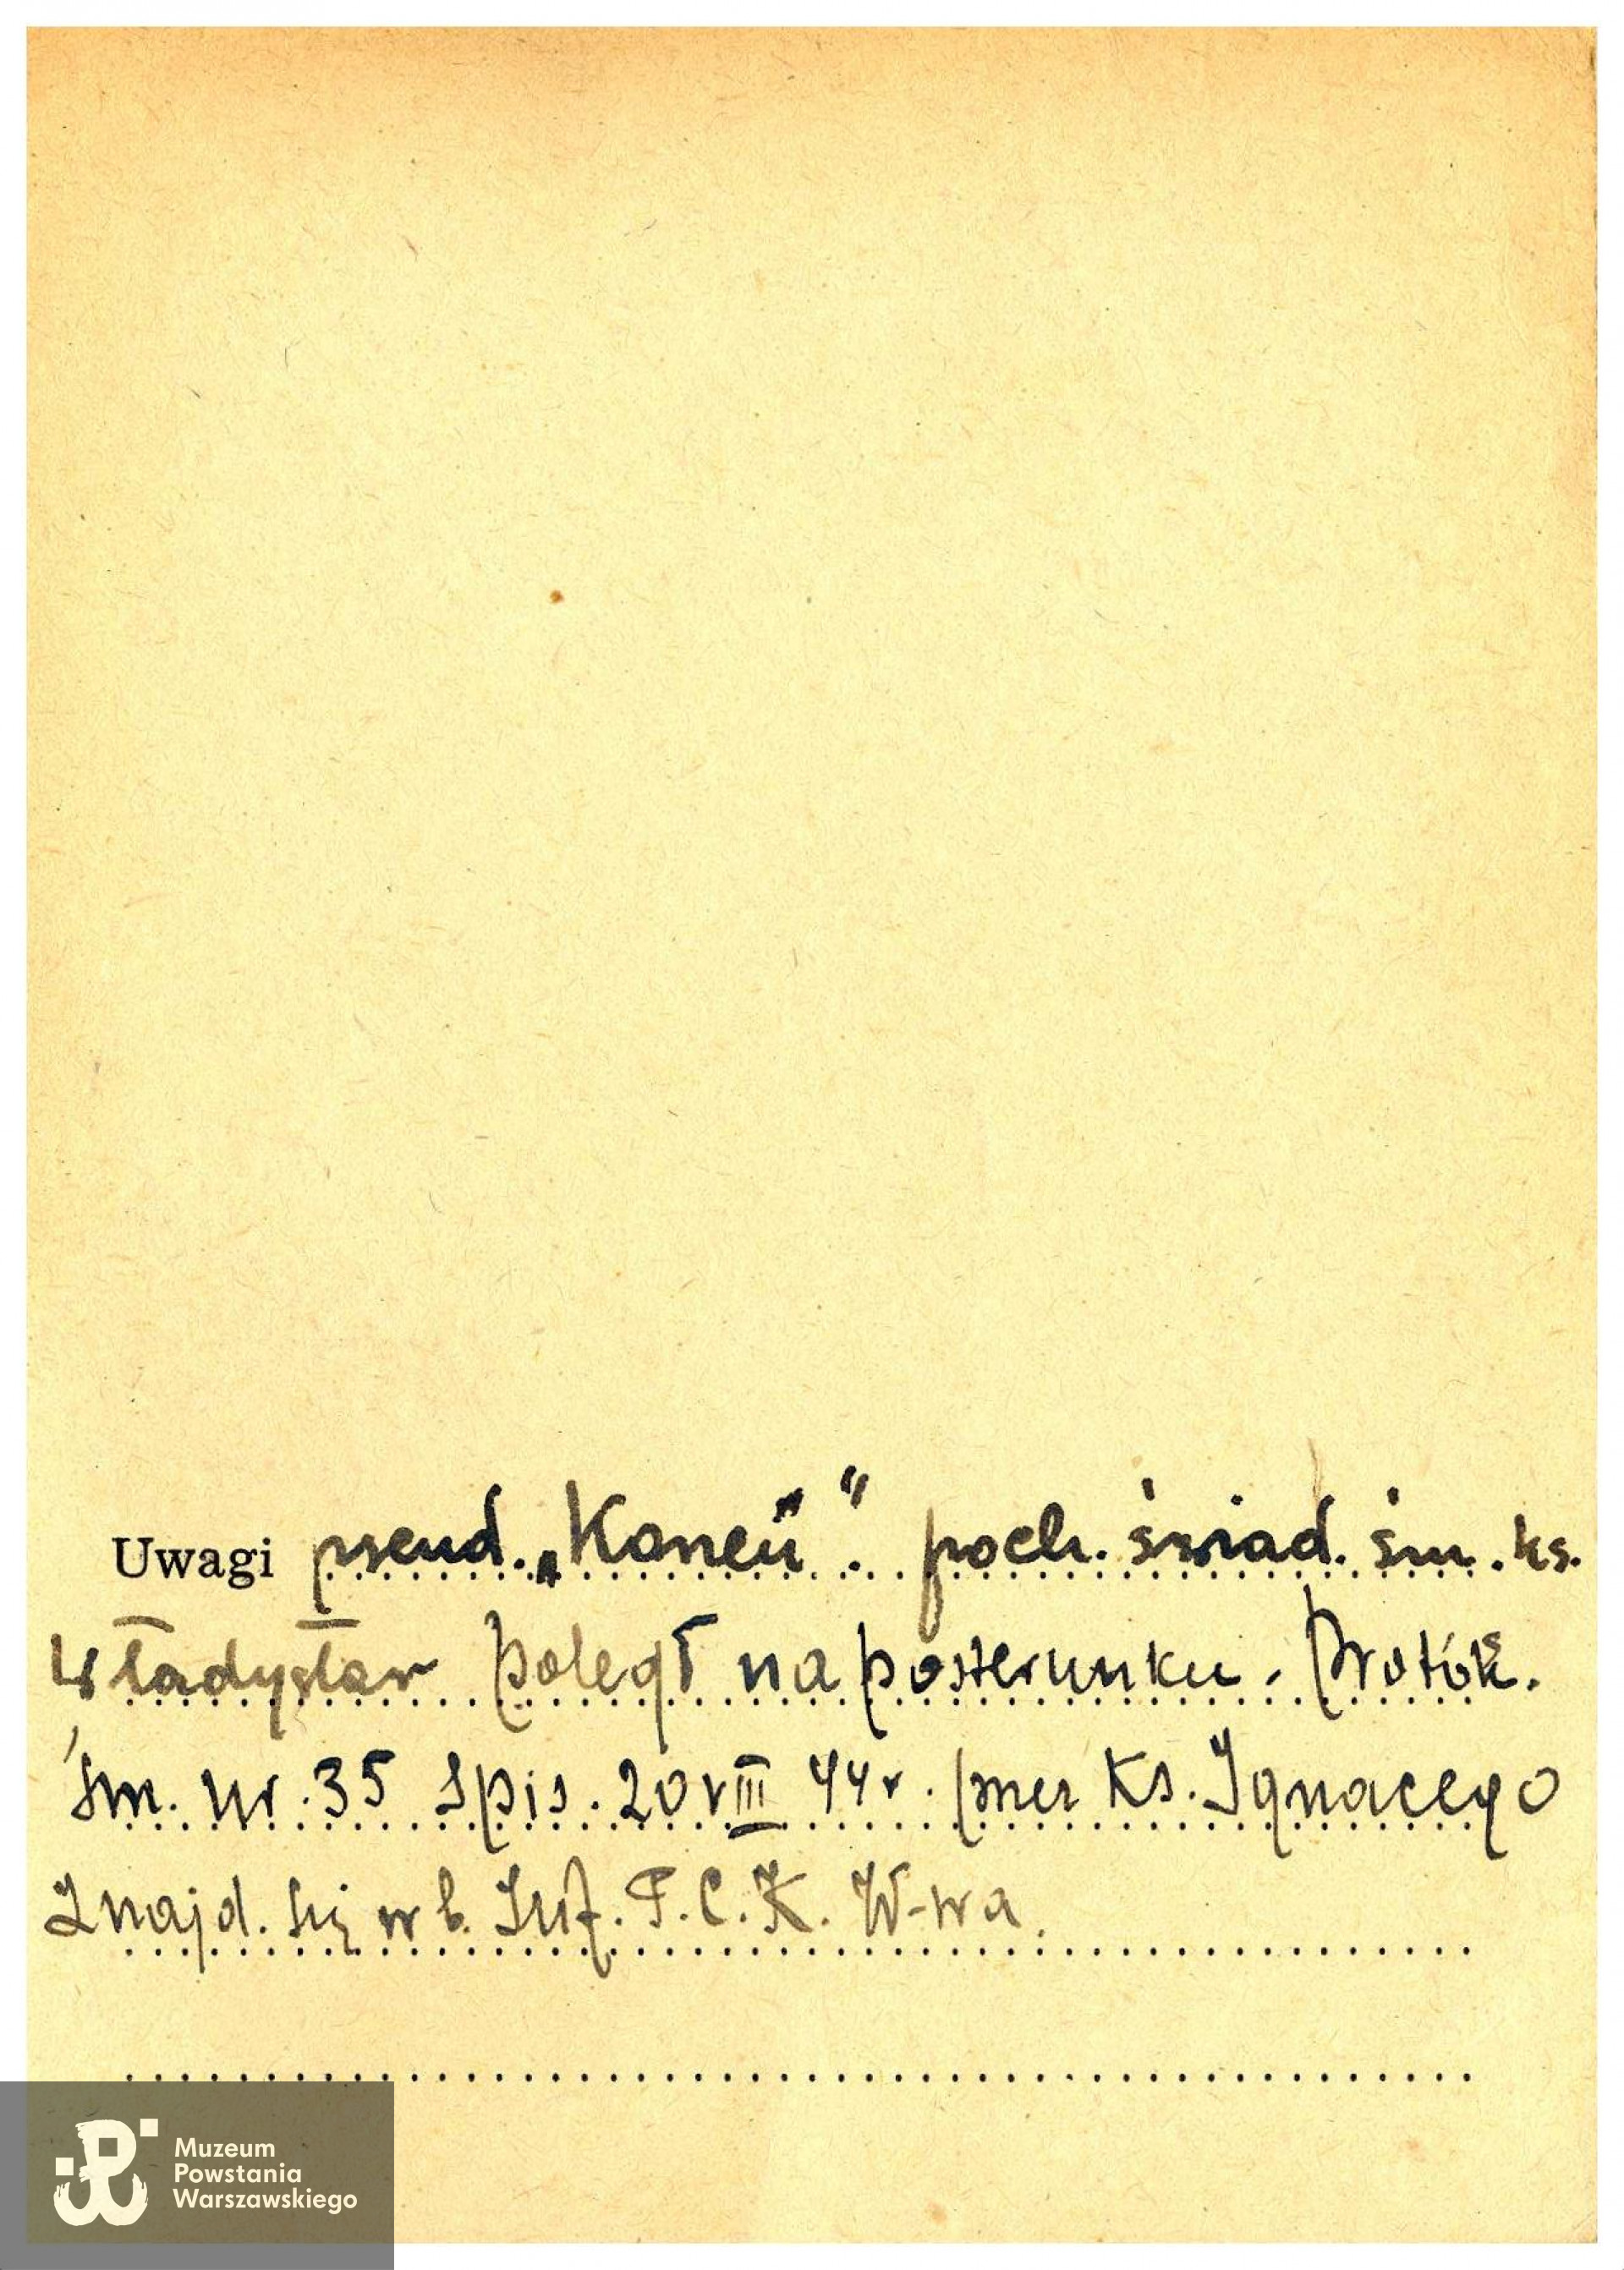 Uwagi pseud. „Koneń". poch. świad. śm. ks.
Władysław poległ na posterunku. Protók.
śm. Nr. 35 Spis. 20 VIII 44 r. przez Ks. Ignacego
Znajd. się w b. Inf. P.C.K. W-wa.
Muzeum
Powstania
Warszawskiego